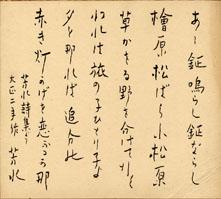 あゝ鉦鳴らし鉦ならし
檜原松ばら小松原
草かきる野を分けて行く
われは旅の子ひとり子よ
夕と那れは追分の
赤き灯かげを恋ふる可那
芳水詩集より
大正二年作 芳水